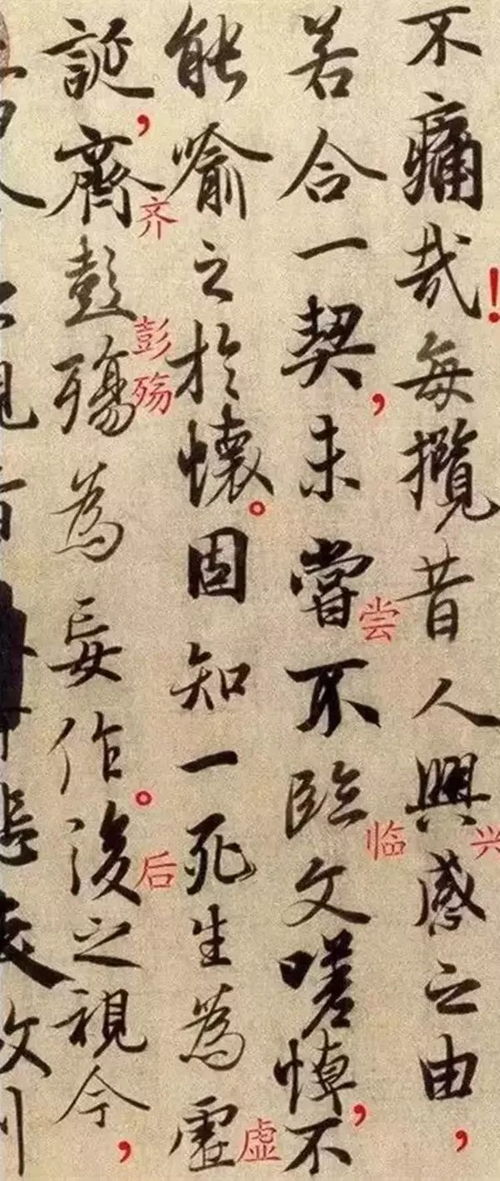 不痛哉！每攬昔人興感之由，
兴
若合一契，未嘗不臨文嗟悼，不
尝
临
能喻之於懷。固知一死生為虛
虚
誕，齊彭殤為妄作。後之視今，
齐
彭殇
后